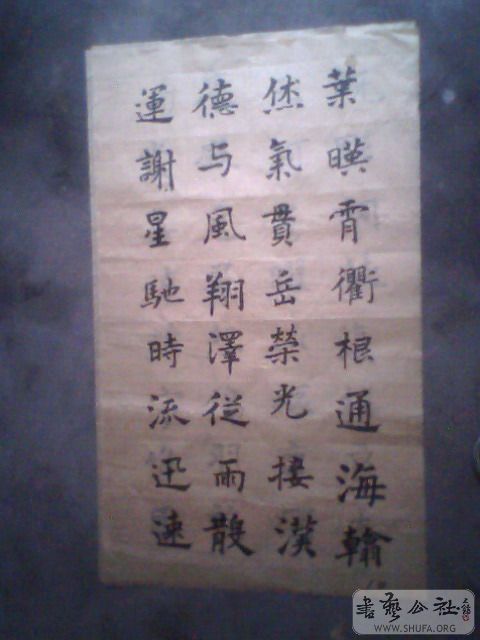 葉暎霄衢根通海翰
烋氣貫岳榮光接漢
德与風翔澤從雨散
運謝星馳時流迅速
書藝公社
WWW.SHUFA.ORG